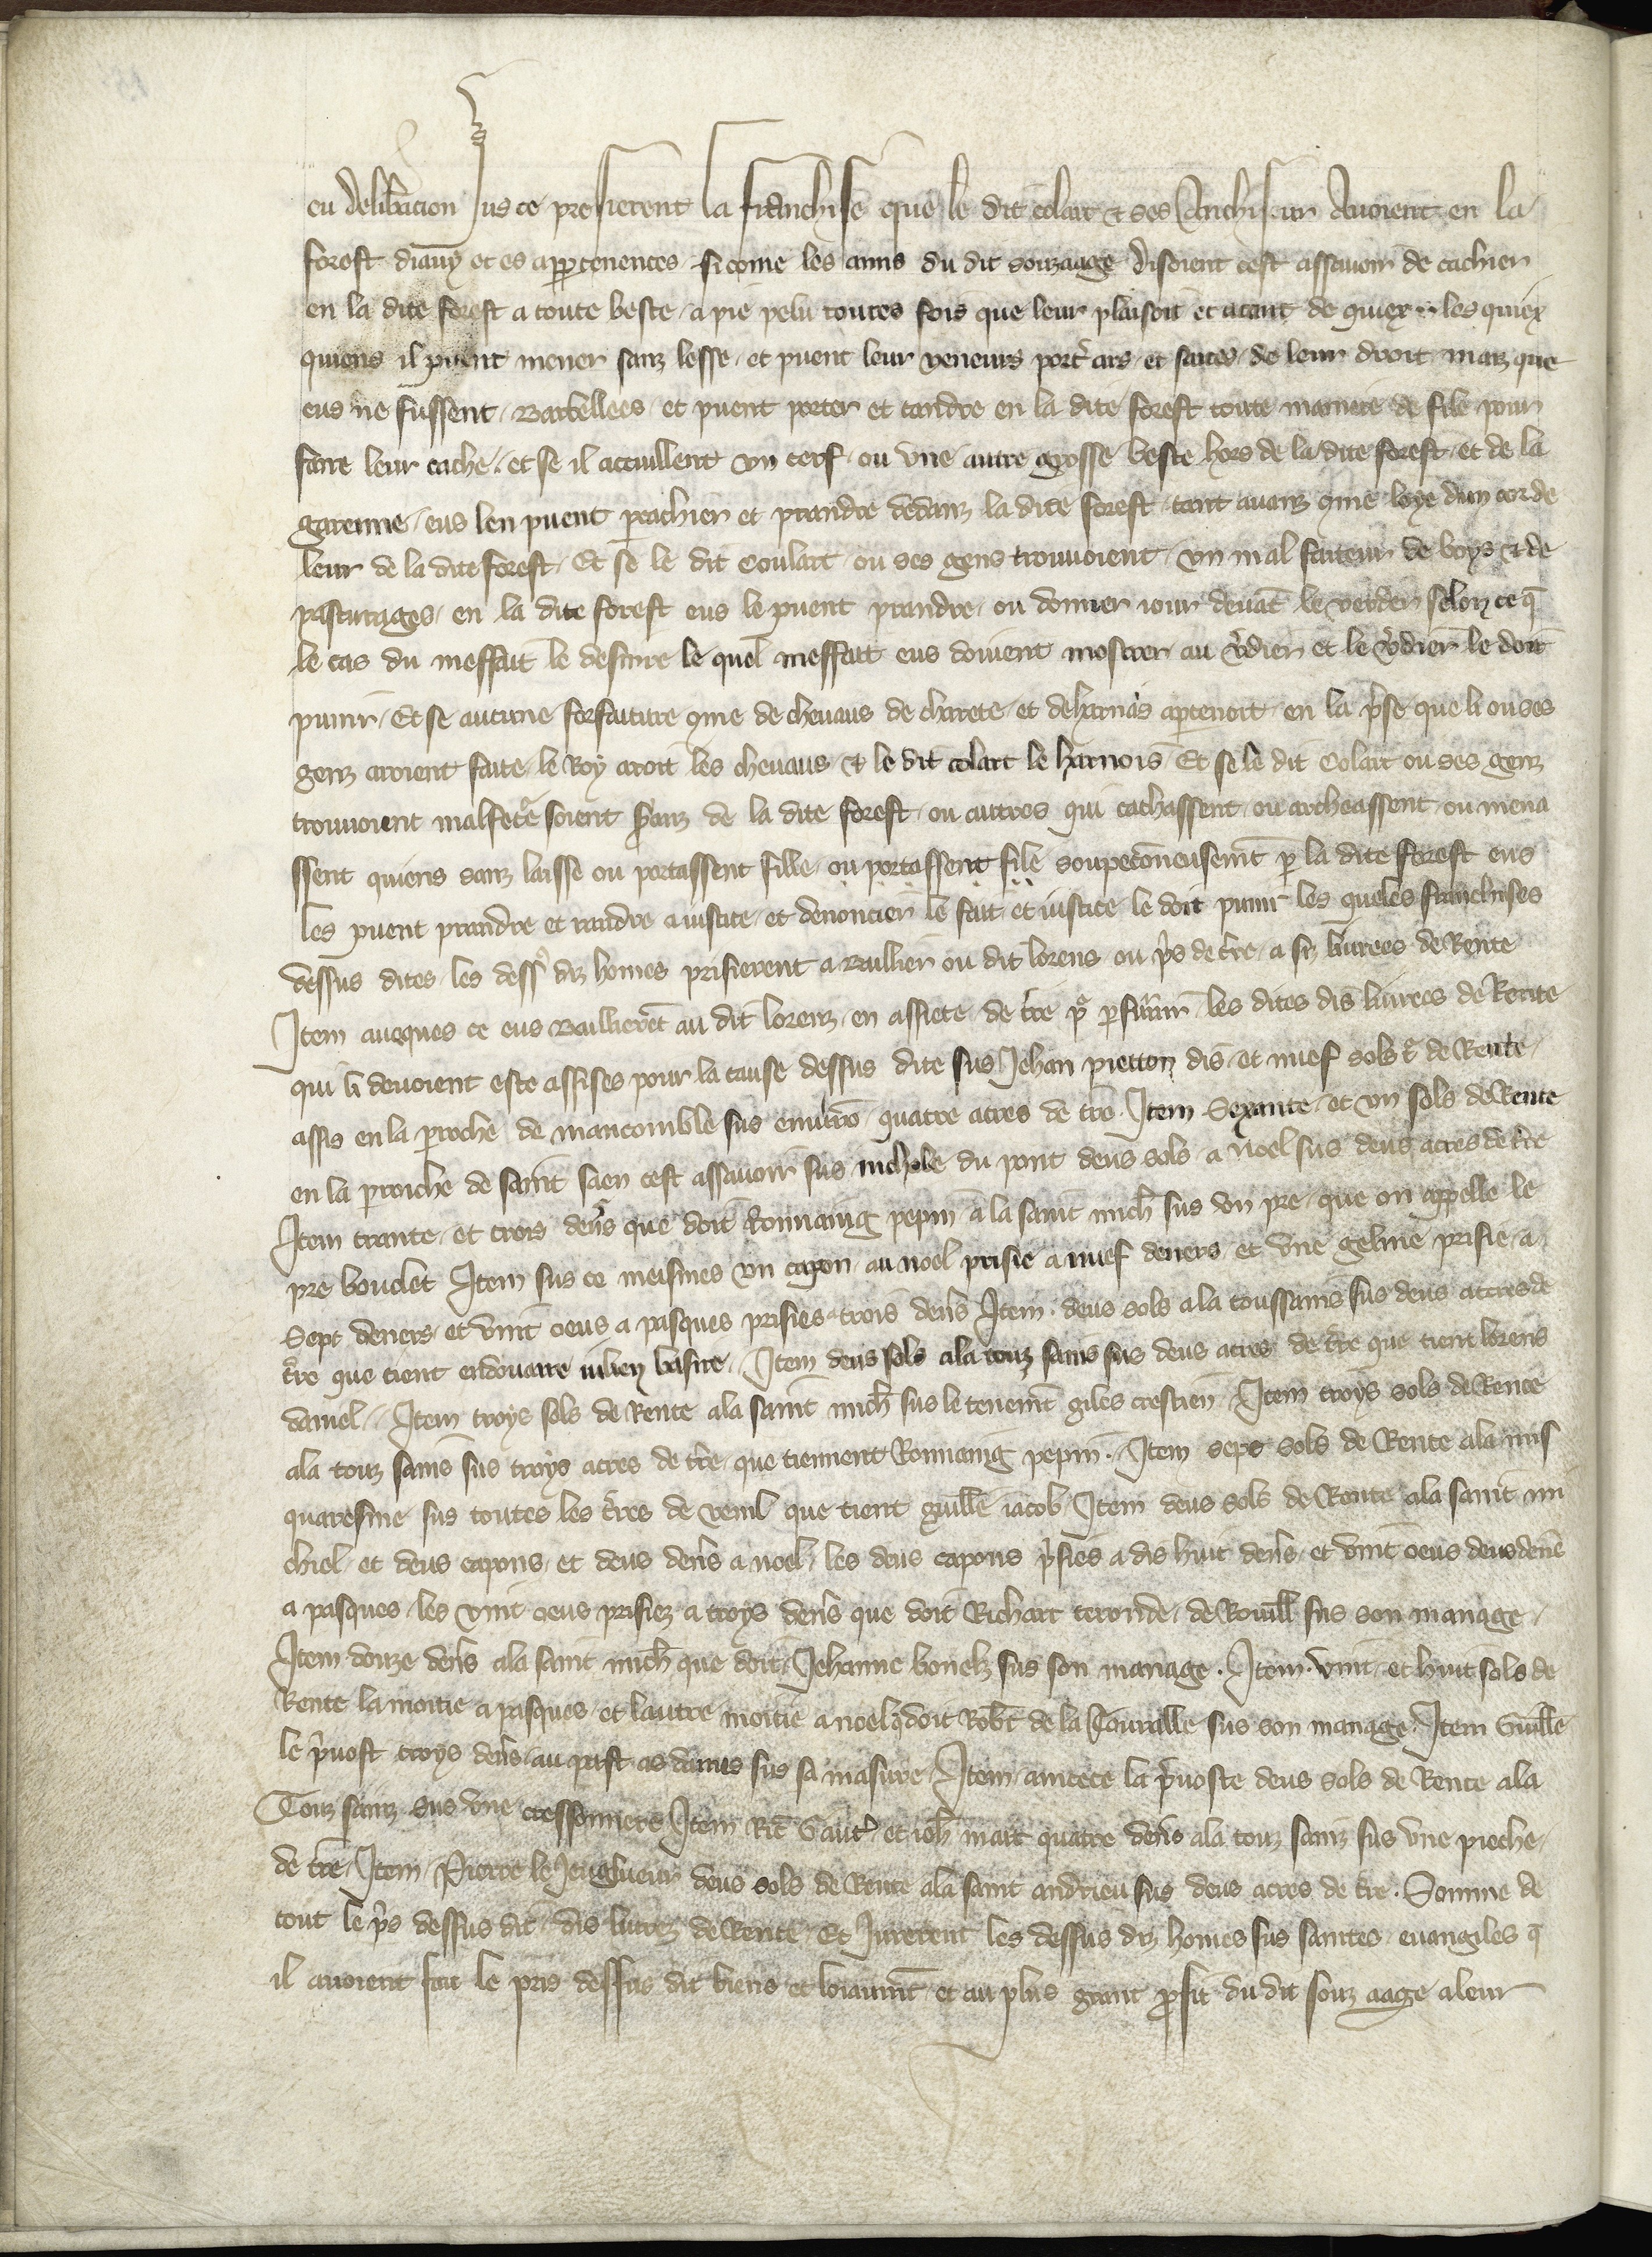 eu deliberacion sus ce prosierent la franchise que le dit colart & ses Anchisseur Avoient en la
forest diauy et es appartenences si come les amis du dit souzaage disoient cest assavoir de cachier
en la dite forest a toute beste a pie pelu toutes fois que leur plaisoit et atant de quiex les quiex
quiens il puent mener sanz lesse et puent leur veneurs port̾ ars et saites de leur droit maiz que
eus ne fussent Barbellees et puent porter et tandre en la dite forest toute maniere de file pour
faire leur cache et se il accuillent vn cerf ou vne autre grosse beste hors de la dite forest et de la
garenne eus len puent porcachier et prandre dedanz la dite forest tant avanz q̄me loye dun cor de
leur de la dite forest Et se le dit Coulart ou ses gens trouvoient vn malfaiteur de boys & de
pasturages en la dite forest eus le puent prandre ou donner iour devāt le verdier selon ce q̄
le cas du meffait le desirre le quel meffait eus doivent mostrer au v̾dier et le v̾dier le doit
punir Et se aucune forfaiture q̄me de chevaus de charete et de harnas apartenoit en la p̾se que li ou ses
genz aroient faite le Roy aroit les chevaus & le dit colart le harnois Et se le dit Colart ou ses genz
trouvoient malfete soient ꝑanz de la dite forest ou autres qui cachassent ou archeassent ou mena
ssent quiens sanz laisse ou portassent fille ou portassent file soupeconeusemt̄ ꝑ la dite forest eus
les puent prandre et randre a iustice et denoncier le fait et iustice le doit punir les queles franchises
dessus dites les dess̾ diz homes prisierent a Baillier ou dit lorens ou p̾s de tre a siz livrees de Rente
Item aveques ce eus Baillierēt au dit lorenz en assiete de tre pᵒ parfurnir les dites dis livrees de Rente
qui li devoient este assises pour la cause dessus dite sus Jehan pietton dis et nuef sols t̾ de Rente
assis en la paroche de mancomble sus enviro quatre acres de tre Item Sexante et vn sols de Rente
en la paroiche de saint saen cest assavoir sus nichole du pont deus sols a Noel sus deus acres de tre
Item trante et trois den̾s que doit Rommaing pepin a la saint mich̄ sus vn pre que on appelle le
pre bouclet Item sus ce meismes vn capon au noel prisie a nuef deners et vne geline prisie a
Sept deners et vint oeus a pasques prisies trois den̾s Item deus sols a la toussains sus deus acres de
tre que tient endouaire iulien basire Item deus sols ala touz sains sus deus acres de tre que tient lorens
daniel Item troys sols de Rente ala saint mich̄ sus le tenemt̄ giles crestien Item troys sols de Rente
ala touz sains sus troys acres de tre que tiennent Rommaing pepin Item sept sols de Rente ala mis
quaresme sus toutes les tres de venil que tient guille iacob Item deus sols de Rente ala saint mi
chiel et deus capons et deus den̾s a noel les deus capons p̾sies a dis huit den̾s et vint oeus deus den̾
a pasques les vint oeus prisiez a troys den̾s que doit Richart teronde de Rouill sus son manage
Item douze den̾s ala saint mich̄ que doit Jehanne bonelz sus son manage Item vint et huit sols de
Rente la moitie a pasques et lautre moitie a noel q̄ doit Rob̄t de la Touralle sus son manage Item Guille
le p̾vost troys den̾s au past as dames sus sa masure Item amtece la p̾voste deus sols de Rente ala
Touz sainz sus vne cressonniere Item Ric̄ Gaut̾ et ioh̄ mait quatre den̾s ala touz sainz sus vne pieche
de tre Item Pierre le Jenglueur deus sols de Rente ala saint andrieu sus deus acres de tre Somme de
tout le p̾s dessus dit dis livrez de Rente Et Jurerent les dessus diz homes sus saintes euangiles q̄
il avoient fait le pris dessus dit biens et loiaumt̄ et au plus grant profit du dit souz aage aleur